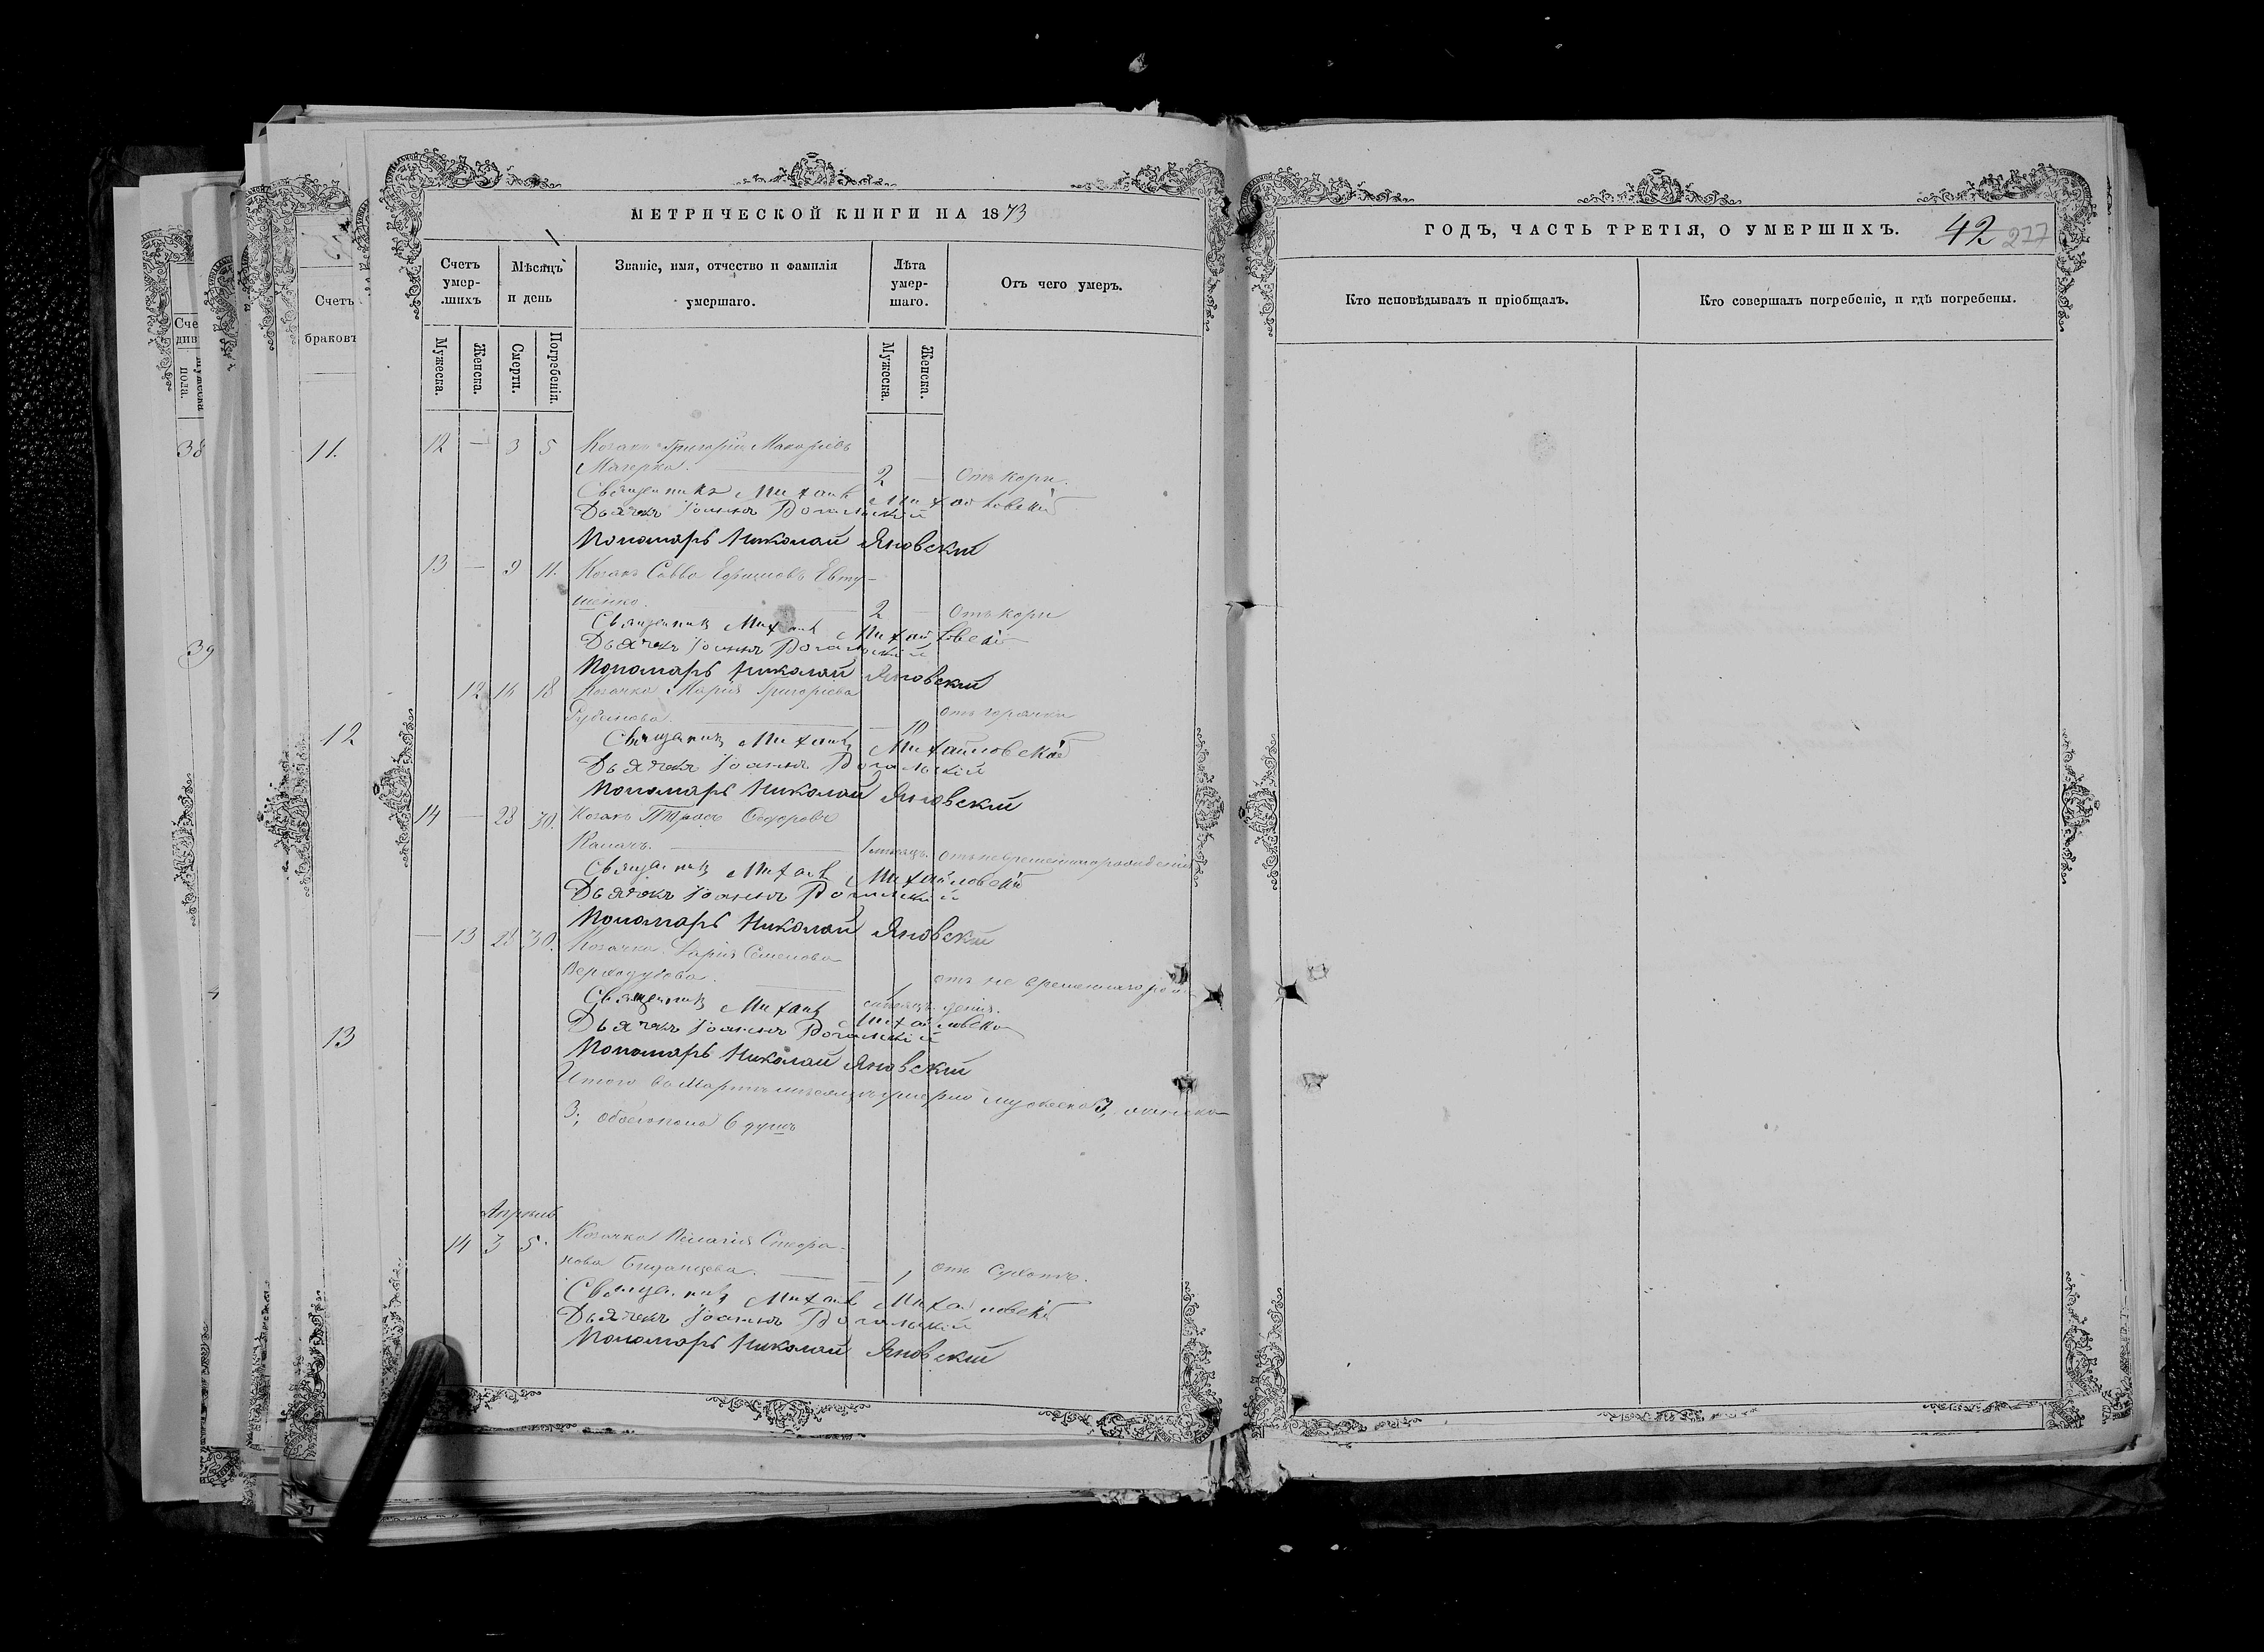 МЕТРИЧЕСКОЙ КНИГИ НА 1873
Счетъ умер-шихъ
Мѣсяцъ и день
Званіе, имя, отчество и фамилія умершаго.
Лѣта умер-шаго.
Отъ чего умеръ.
Мужеска.
Женска.
Смерти.
Погребенія.
Мужеска.
Женска.
12 — 3 5 Козакъ Григорій Макаріевъ
Магерка. 2 — Отъ кори.
Священникъ Михаилъ Михайловскій
Дьячекъ Іоаннъ Рогальскій
Пономарь Николай Яновскій
13 — 9 11. Козакъ Савва Ефимовъ Евту-
шенко. 2 — Отъ кори
Священникъ Михаилъ Михайловскій
Дьячекъ Іоаннъ Рогальскій
Пономарь Николай Яновскій
12 16 18 Козачка Марія Григоріева
— 10 отъ горячки
Священникъ Михаилъ Михайловскій
Дьячекъ Іоаннъ Рогальскій
Пономарь Николай Яновскій
14 — 28 30. Козакъ
1 мѣсяцъ. отъ невременнаго рожденія
Священникъ Михаилъ Михайловскій
Дьячекъ Іоаннъ Рогальскій
Пономарь Николай Яновскій
— 13 28 30. Козачка Дарія Семенова
1 отъ не временнаго рож-
мѣсяцъ денія.
Священникъ Михаилъ Михайловскій
Дьячекъ Іоаннъ Рогальскій
Пономарь Николай Яновскій
Итого въ Мартѣ мѣсяцѣ умерло мужеска 3, женска
3; обоего пола 6 душъ
Апрѣль
14 3 5. Козачка Пелагія Стефа-
нова — 1 отъ Сухотъ.
Священникъ Михаилъ Михайловскій
Дьячекъ Іоаннъ Рогальскій
Пономарь Николай Яновскій
ГОДЪ, ЧАСТЬ ТРЕТІЯ, О УМЕРШИХЪ.
42 277
Кто исповѣдывалъ и пріобщалъ.
Кто совершалъ погребеніе, и гдѣ погребены.
Счетъ
браковъ
11.
12
13
38
39